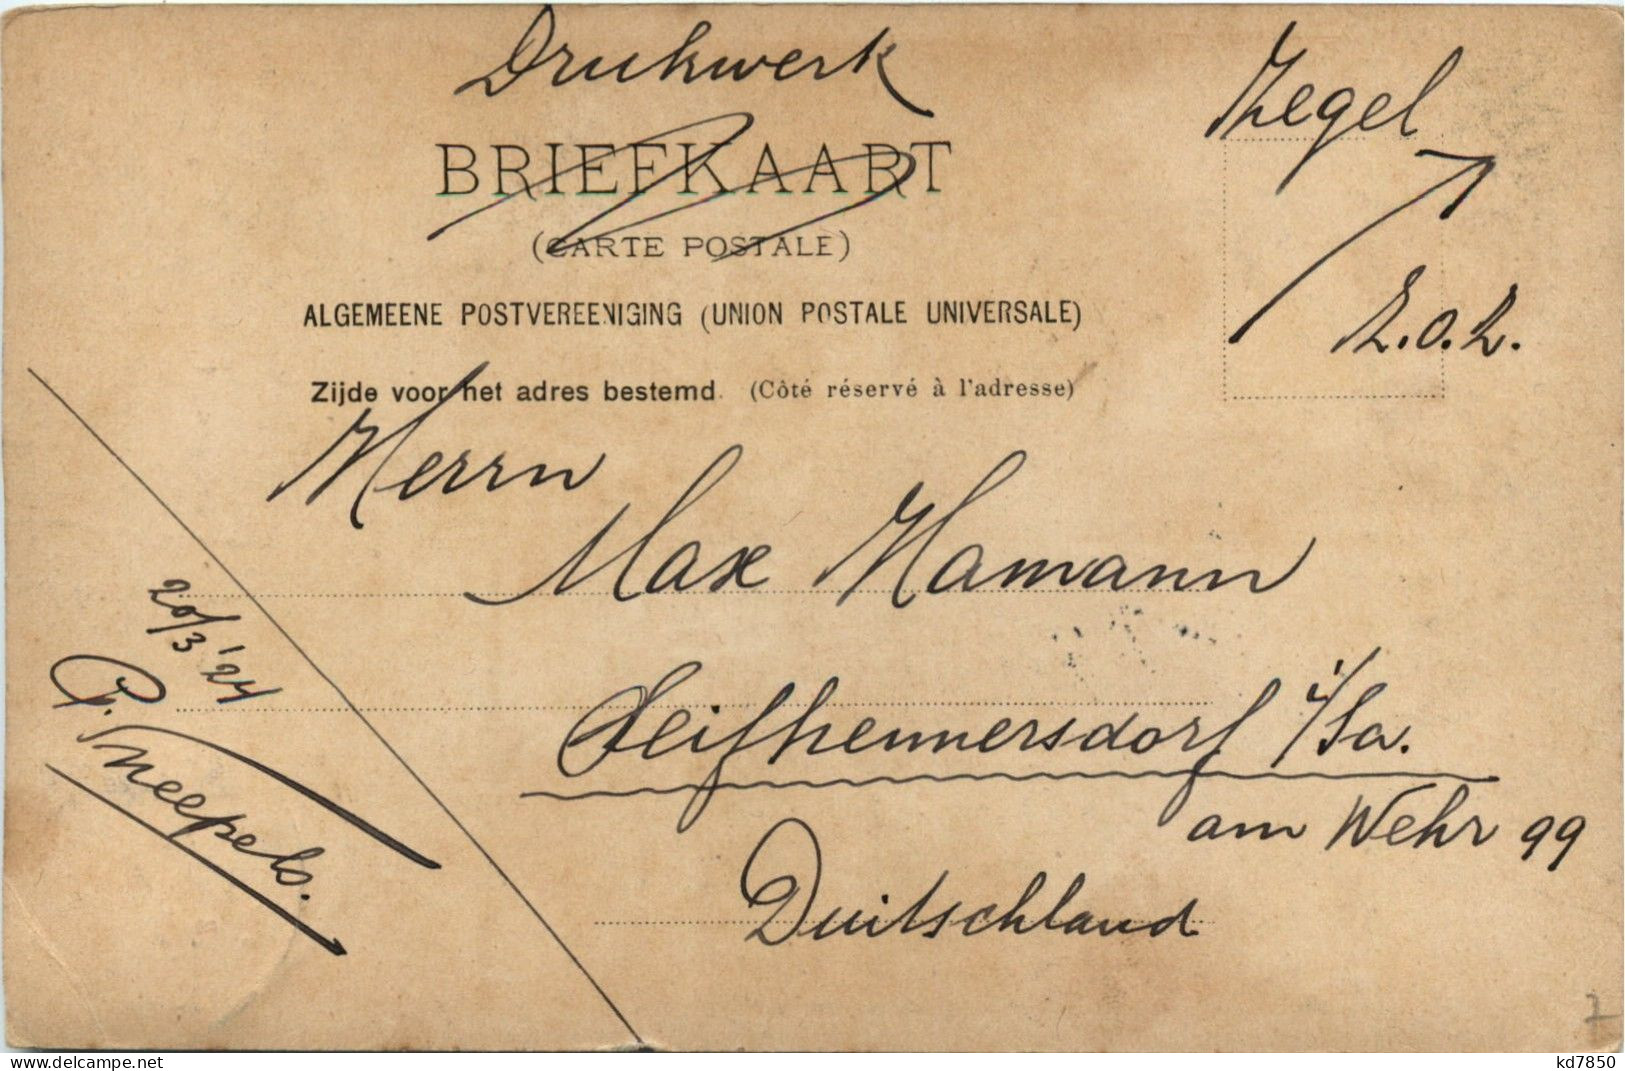 Drukwerk
Zegel
BRIEFKAART
(CARTE POSTALE)
Z.O.Z.
ALGEMEENE POSTVEREENIGING (UNION POSTALE UNIVERSALE)
Zijde voor het adres bestemd. (Côté réservé à l'adresse)
Herrn
Max Hamann
Seifhennersdorf i/Sa.
am Wehr 99
Duitschland
20/3 '24
7
kd7850